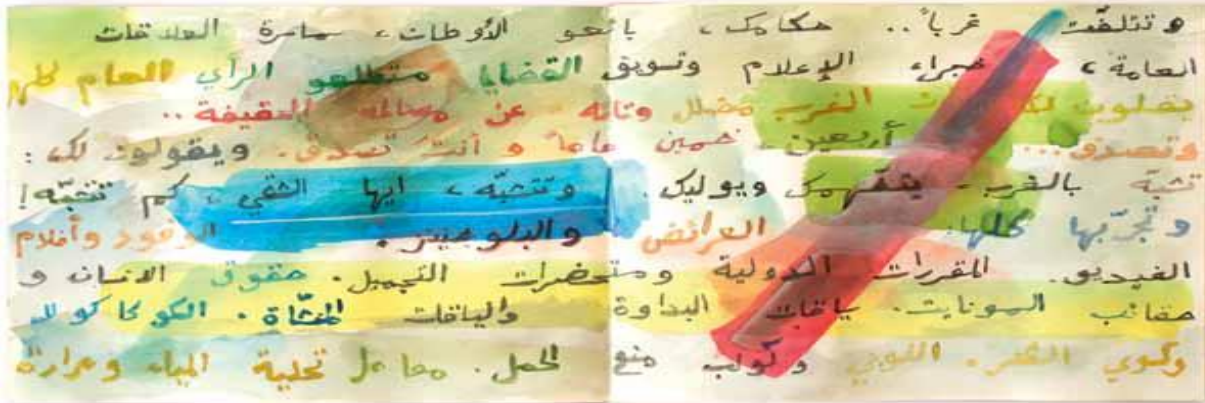 وتتلفّت غرباً.. حكامك، بائعو الأوطان، سماسرة العلاقات
العامة، خبراء الإعلام وتسويق القضايا متطلعو الرأي العام كلهم
يقولون لك الغرب مضلل وتائه عن مصالحه الحقيقة..
وتصدق... أربعين، خمسين عاماً وأنت تصدق. ويقولون لك:
تشبّه بالغرب، يتفهمك ويوليك. وتتشبّه، ايها الشقي، كم تتشبّه!
وتجرّبها كلها: العرائض والبلوجينز. الوفود وأفلام
الفيديو. المقررات الدولية ومتحضرات التجميل. حقوق الانسان و
حقائب السونايت. ياقات البداوة والياقات المنشّاة. الكوكاكولا
وكوي الشعر. اللوبي وكولب منع الحمل. معامل تحلية المياه وحرارة